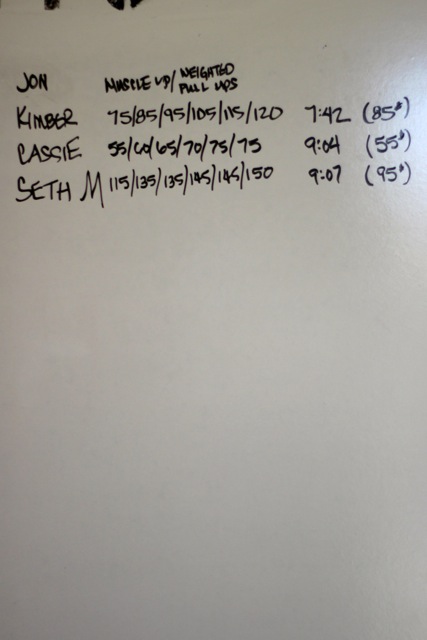 JON MUSCLE UP/ WEIGHTED PULL UPS
KIMBER 75/85/95/105/115/120 7:42 (85#)
CASSIE 55/60/65/70/75/75 9:04 (55#)
SETH M 115/135/135/145/145/150 9:07 (95#)